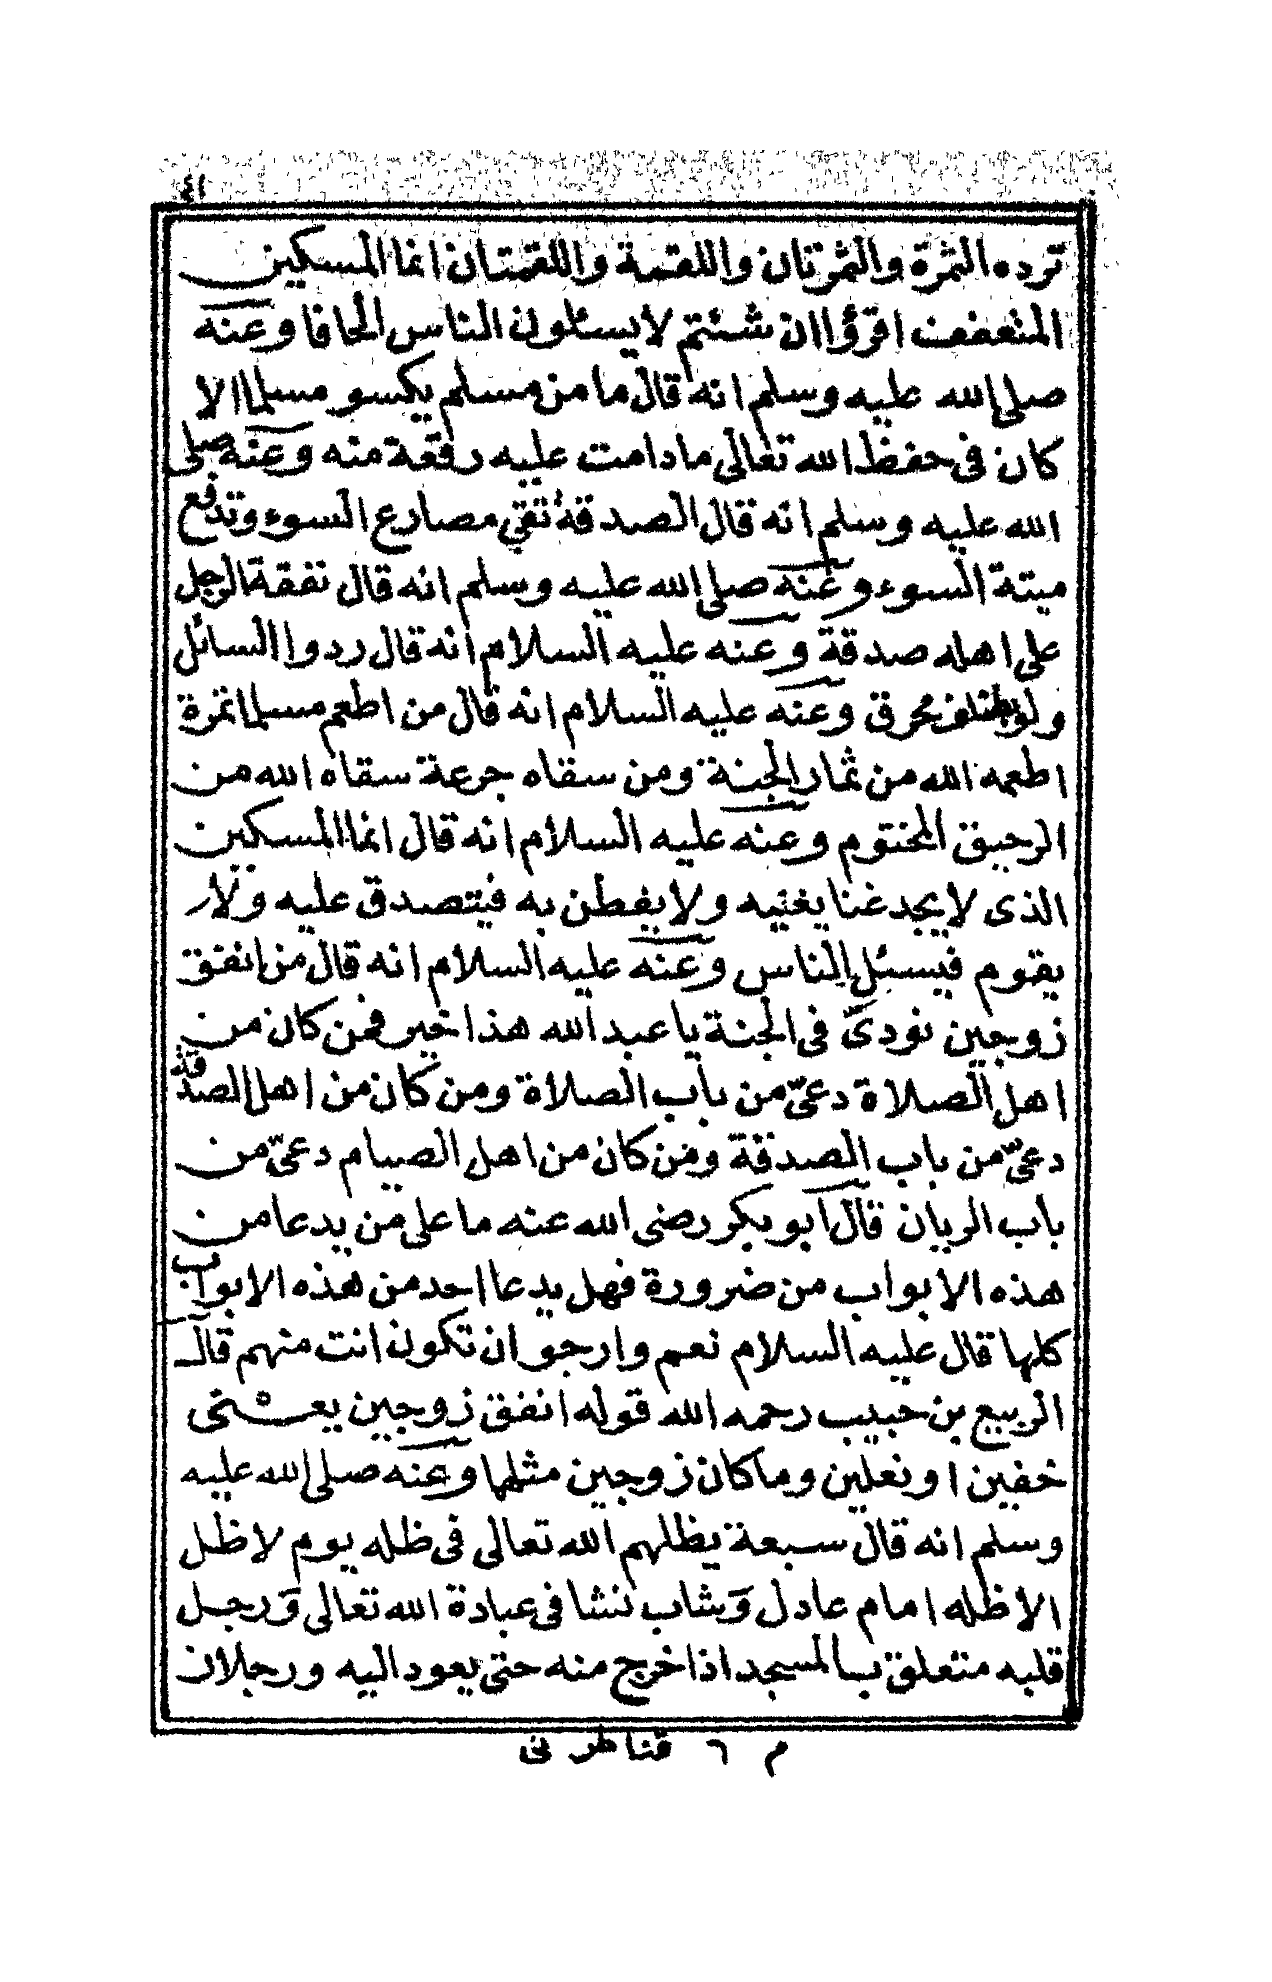 ٤١
ترده الثمرة والثمرتان واللقمة واللقمتان انما المسكين
المتعفف اقرؤا ان شئتم لا يسئلون الناس الحافا وعنه
صلى الله عليه وسلم انه قال ما من مسلم يكسو مسلما الا
كان فى حفظ الله تعالى ما دامت عليه رقعة منه وعنه صلى
الله عليه وسلم انه قال الصدقة تقي مصارع السوء وتدفع
ميتة السوء وعنه صلى الله عليه وسلم انه قال نفقة الرجل
على اهله صدقة وعنه عليه السلام انه قال ردوا السائل
ولو بظلف محرق وعنه عليه السلام انه قال من اطعم مسلما تمرة
اطعمه الله من ثمار الجنة ومن سقاه جرعة سقاه الله من
الرحيق المختوم وعنه عليه السلام انه قال انما المسكين
الذى لا يجد غنا يغنيه ولا يفطن به فيتصدق عليه ولا
يقوم فيسئل الناس وعنه عليه السلام انه قال من انفق
زوجين نودى فى الجنة يا عبد الله هذا خير فمن كان من
اهل الصلاة دعى من باب الصلاة ومن كان من اهل الصدقة
دعى من باب الصدقة ومن كان من اهل الصيام دعى من
باب الريان قال ابو بكر رضى الله عنه ما على من يدعا من
هذه الابواب من ضرورة فهل يدعا احد من هذه الابواب
كلها قال عليه السلام نعم وارجو ان تكون انت منهم قال
الربيع بن حبيب رحمه الله قوله انفق زوجين يعنى
خفين او نعلين وما كان زوجين مثلهما وعنه صلى الله عليه
وسلم انه قال سبعة يظلهم الله تعالى فى ظله يوم لا ظل
الا ظله امام عادل وشاب نشا فى عبادة الله تعالى ورجل
قلبه متعلق بالمسجد اذا خرج منه حتى يعود اليه ورجلان
م ٦ قناطر نى